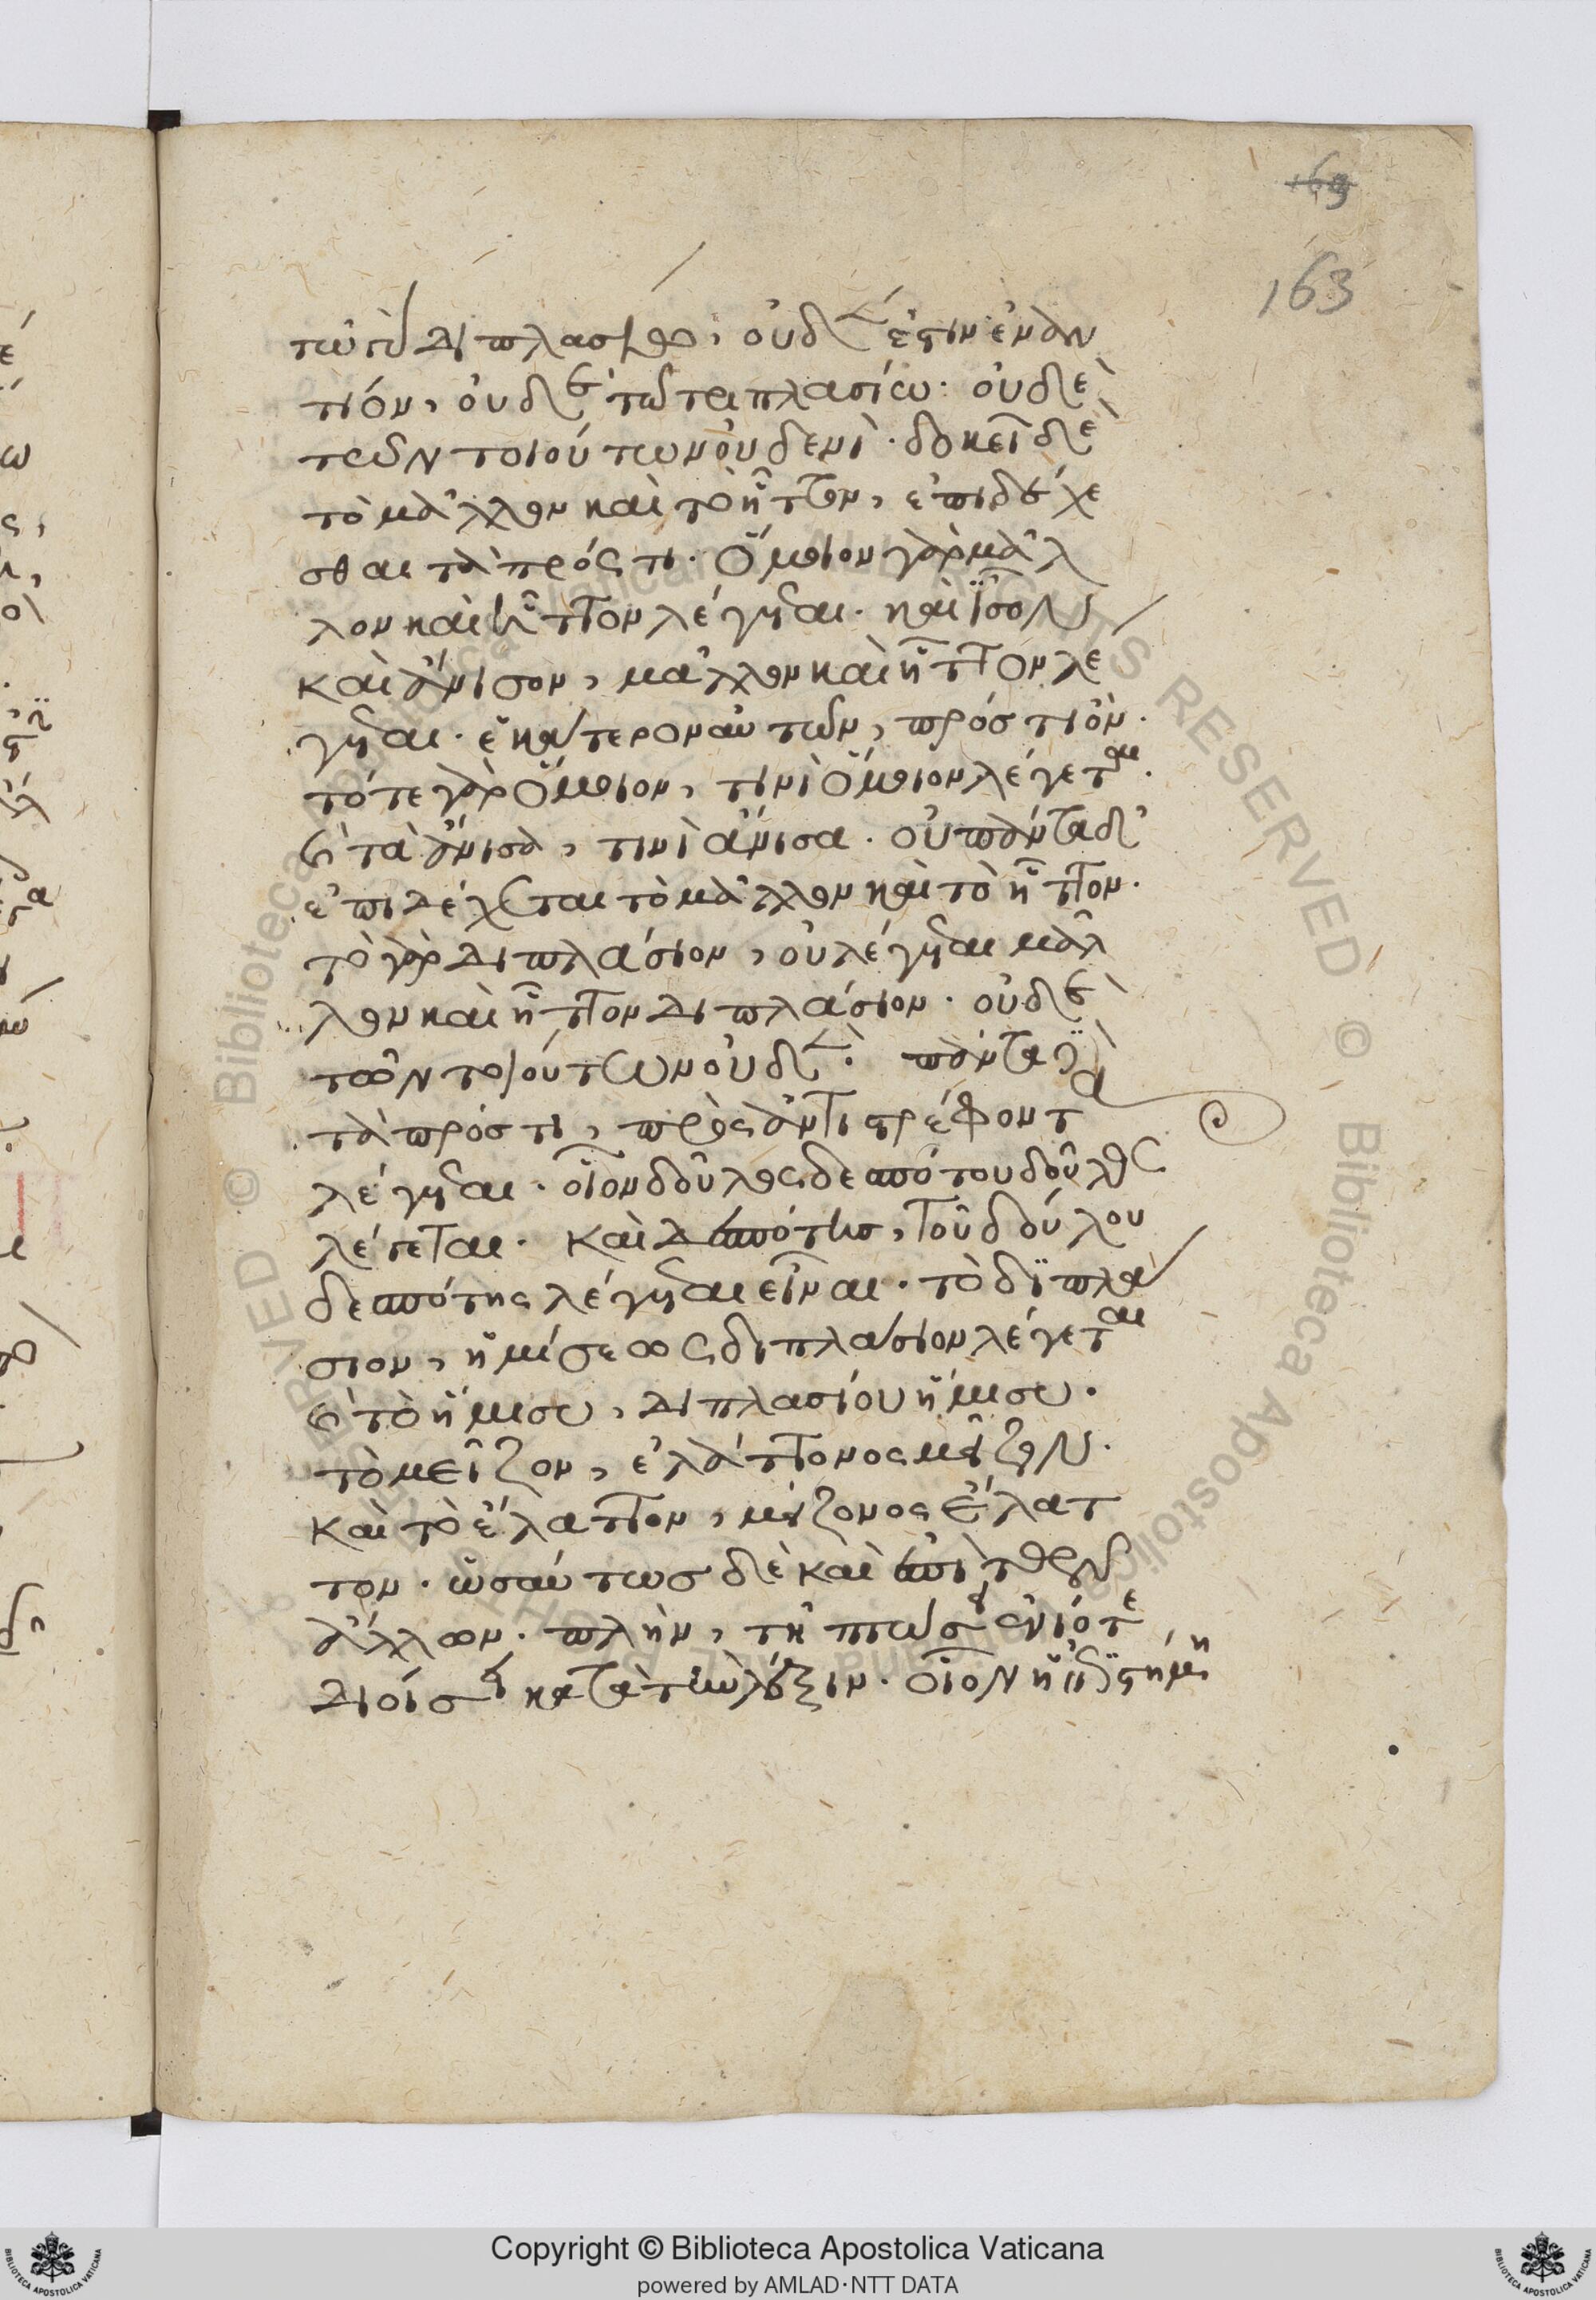 163
163
τῶ γὰρ διπλασίω, οὐδέν ἐστιν ἐναν
τίον, οὐδὲ τῶ τριπλασίω· οὐδὲ
τῶν τοιούτων οὐδενί· δοκεῖ δὲ
τὸ μᾶλλον καὶ τὸ ἧττον, ἐπιδέχε
σθαι τὰ πρός τι· ὅμοιον γὰρ μᾶλ
λον καὶ ἧττον λέγεται· καὶ ἴσον
καὶ ἄνισον, μᾶλλον καὶ ἧττον λέ
γεται· ἑκάτερον αὐτῶν, πρός τι ὄν·
τό τε γὰρ ὅμοιον, τινὶ ὅμοιον λέγεται·
καὶ τὰ ἄνισα, τινὶ ἄνισα· οὐ πάντα δ'
ἐπιδέχεται τὸ μᾶλλον καὶ τὸ ἧττον·
τὸ γὰρ διπλάσιον, οὐ λέγεται μᾶλ
λον καὶ ἧττον διπλάσιον· οὐδὲ
τῶν τοιούτων οὐδέν· πάντα δὲ
τὰ πρός τι, πρὸς ἀντιστρέφοντα
λέγεται· οἷον δοῦλος δεσπότου δοῦλος
λέγεται· καὶ δεσπότης, τοῦ δούλου
δεσπότης λέγεται εἶναι· τὸ διπλά
σιον, ἡμίσεως διπλάσιον λέγεται
καὶ τὸ ἥμισυ, διπλασίου ἥμισυ·
τὸ μεῖζον, ἐλάττονος μεῖζον·
καὶ τὸ ἔλαττον, μείζονος ἔλατ
τον· ὡσαύτως δὲ καὶ ἐπὶ τῶν
ἄλλων· πλὴν, τῆ πτώσει ἐνίοτε
διοίσει κατὰ τὴν λέξιν· οἷον ἡ ἐπιστήμη
Copyright © Biblioteca Apostolica Vaticana
powered by AMLAD·NTT DATA